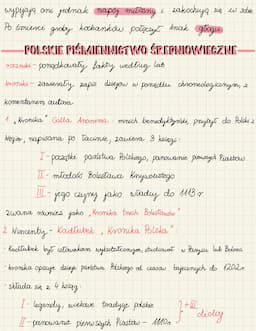 wypijają oni jednak napój miłosny i zakochują się w sobie
Po śmierci groby kochanków połączył krzak głogu
POLSKIE PIŚMIENNICTWO ŚREDNIOWIECZNE
roczniki - porządkowały fakty według lat
kroniki - zawierały zapis dziejów w porządku chronologicznym, z
komentarzem autora
1. „Kronika” Galla Anonima - mnich benedyktyński, przybył do Polski z
Węgier, napisana po łacinie, zawiera 3 księgi:
I - początki państwa Polskiego, panowanie pierwszych Piastów
II - młodość Bolesława Krzywoustego
III - jego czyny jako władcy do 1113 r
zwana również jako „Kroniką trzech Bolesławów”
2. Wincenty Kadłubek „Kronika Polska”
- Kadłubek był człowiekiem wykształconym, studiował w Paryżu lub Bolonii
- kronika opisuje dzieje państwa Polskiego od czasów bajecznych do 1202r.
- składa się z 4 ksiąg:
I - legendy, wiekowe tradycje polskie
II - panowanie pierwszych Piastów - 1110r.
+ III dialog